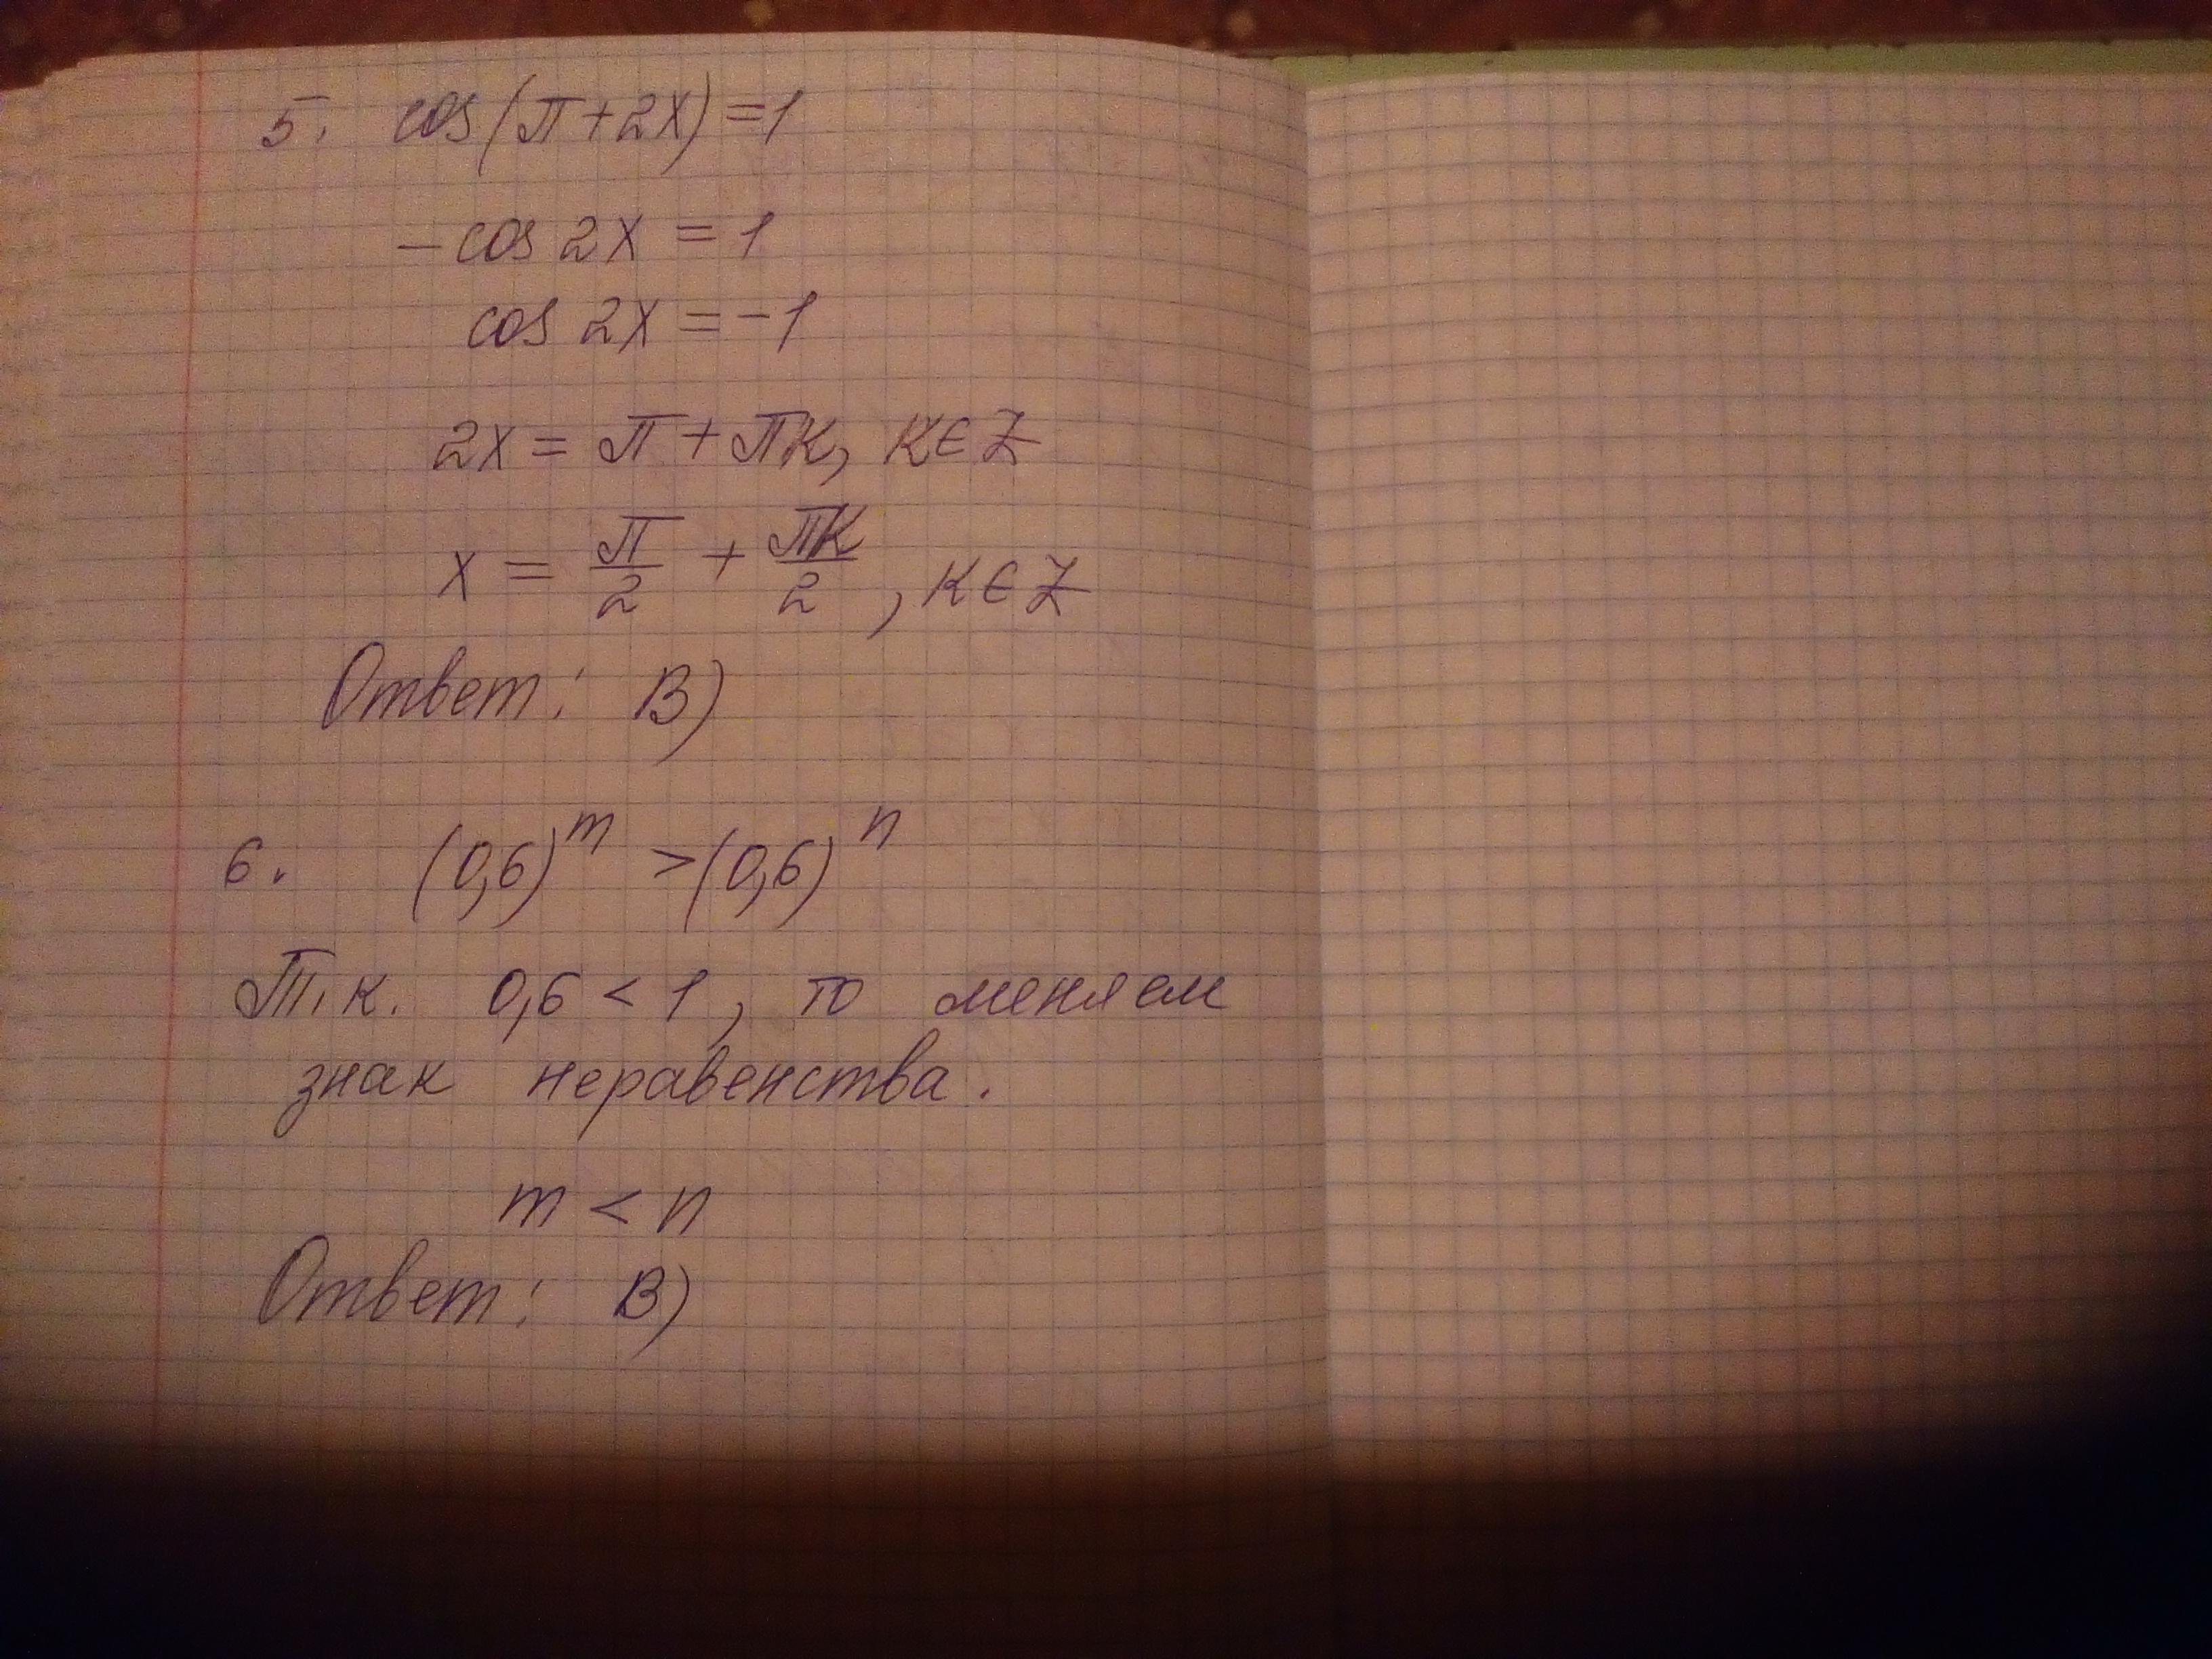 5. cos(π+2x)=1
-cos 2x = 1
cos 2x = -1
2x = π + πк, к∈Z
x = π/2 + πк/2, к∈Z
Ответ: В)
6. (0,6)^m > (0,6)^n
Т.к. 0,6 < 1, то меняем
знак неравенства.
m < n
Ответ: В)